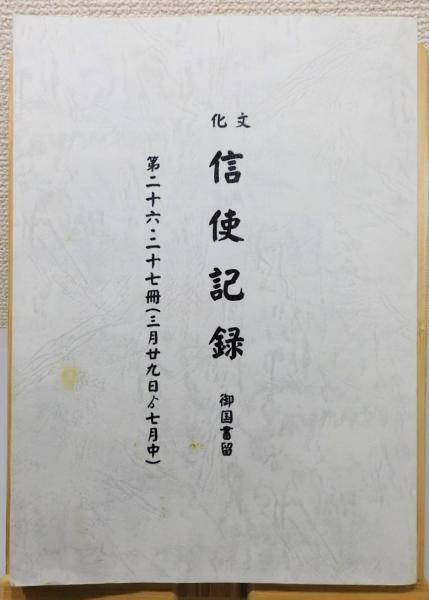 文化
信使記録
御国書留
第二十六・二十七冊(三月廿九日ゟ七月中)